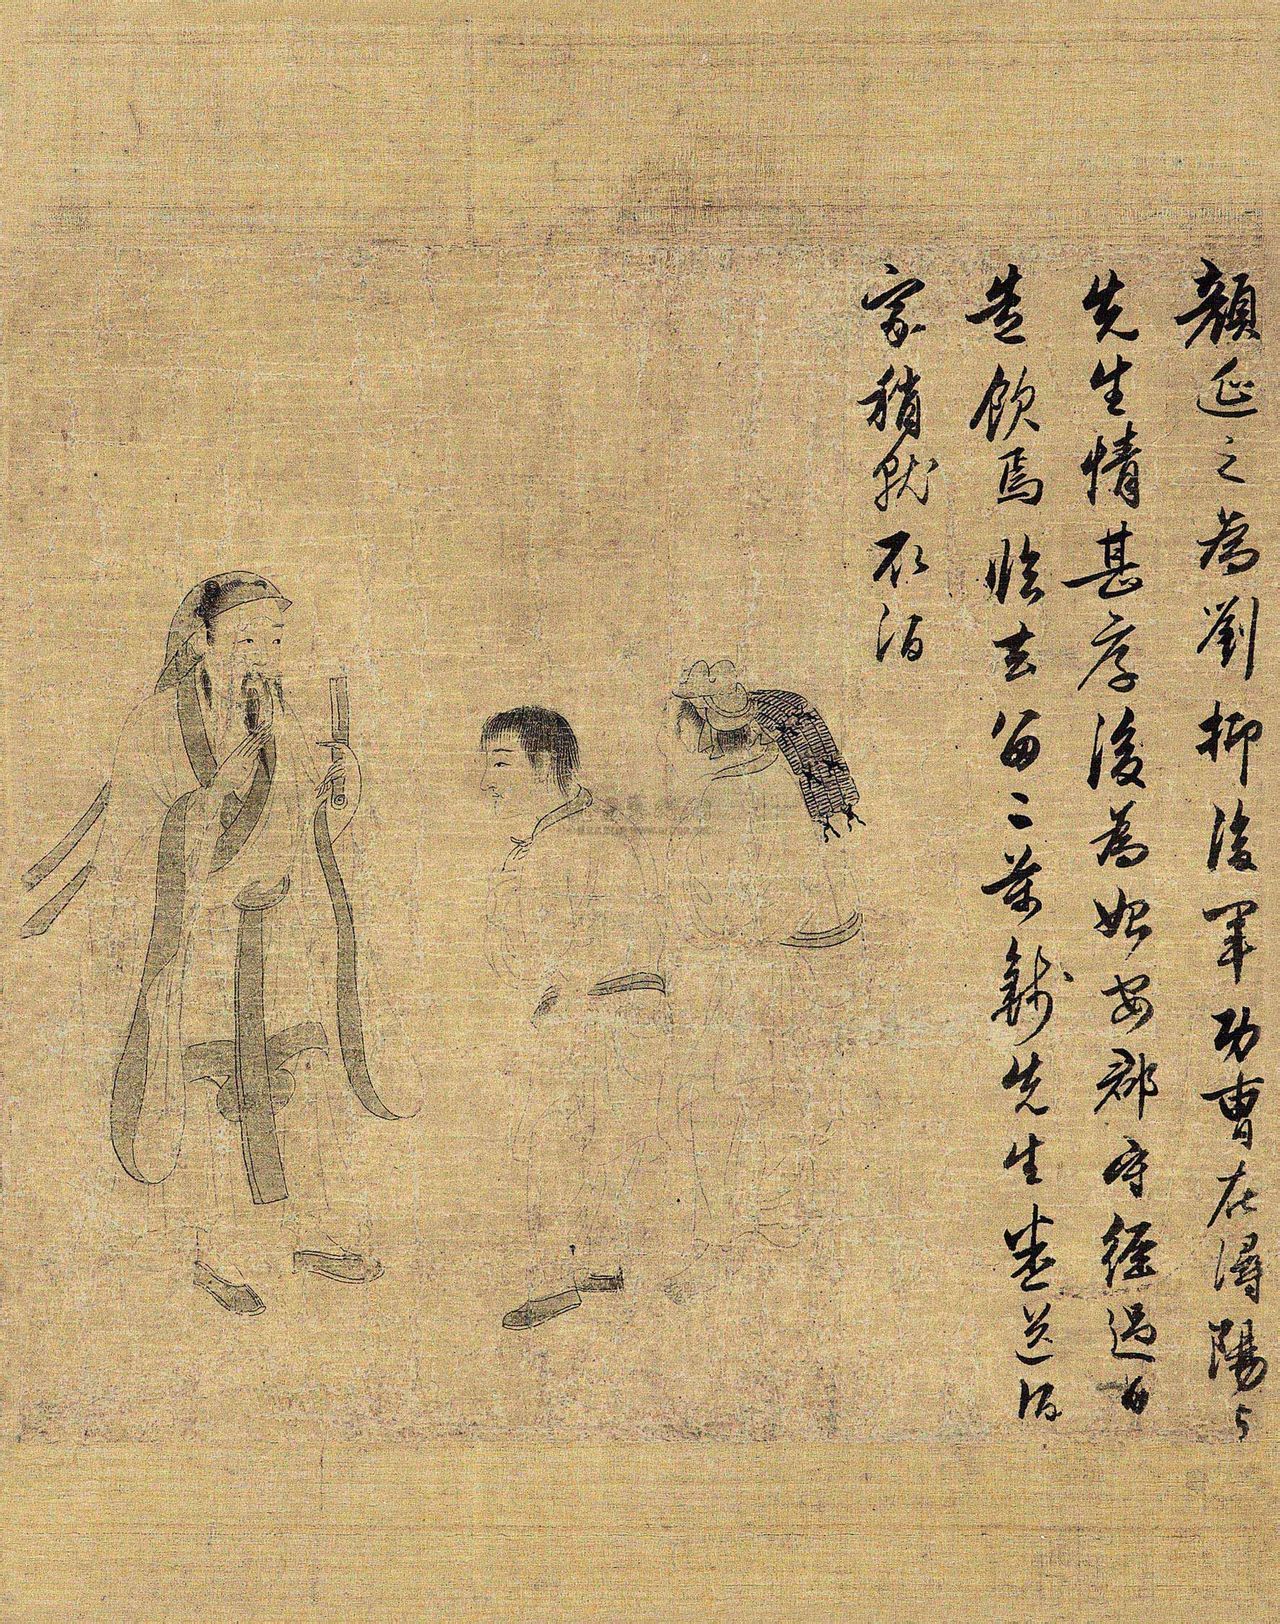 顔延之為劉柳後軍功曹在潯陽与
先生情甚厚後為始安郡守經過日
造飲焉臨去留二萬錢先生悉送酒
家稍就取酒